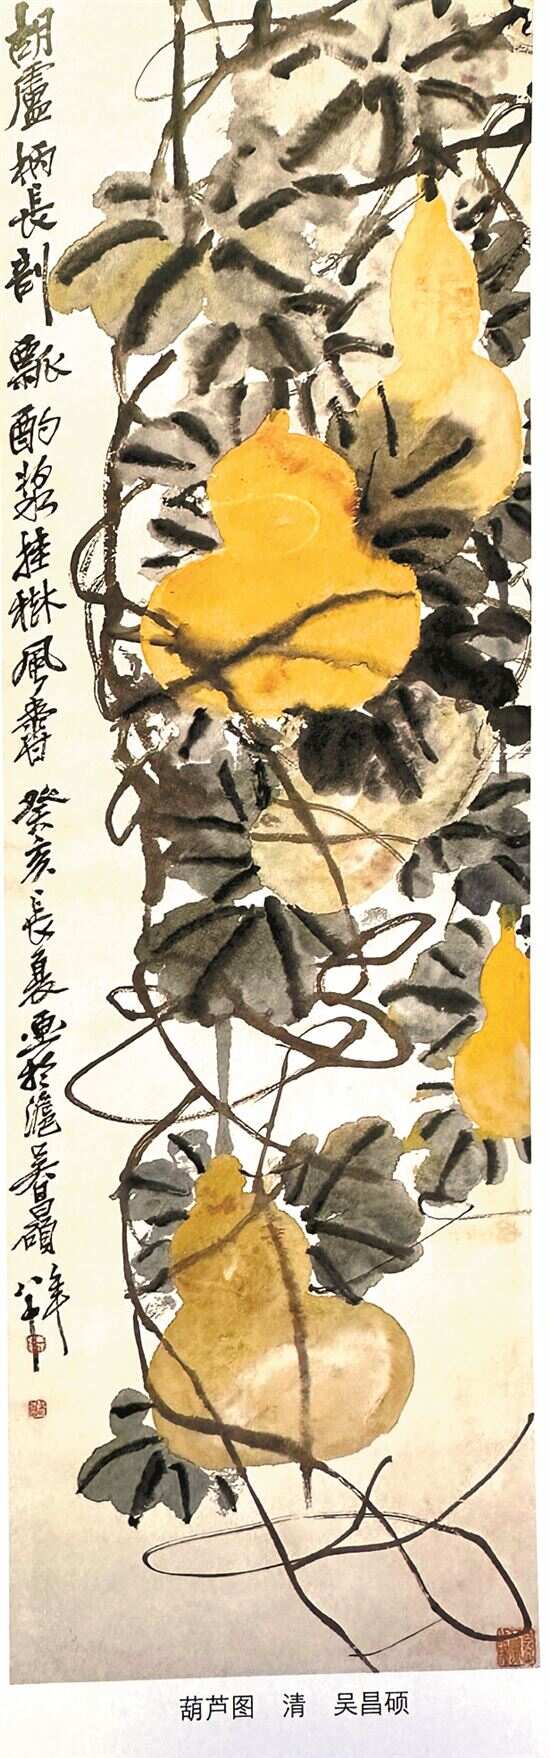 胡盧柄長剖瓢酌漿挂樹風香癸亥長夏畫於滬吳昌碩年八十
葫芦图　清　吴昌硕